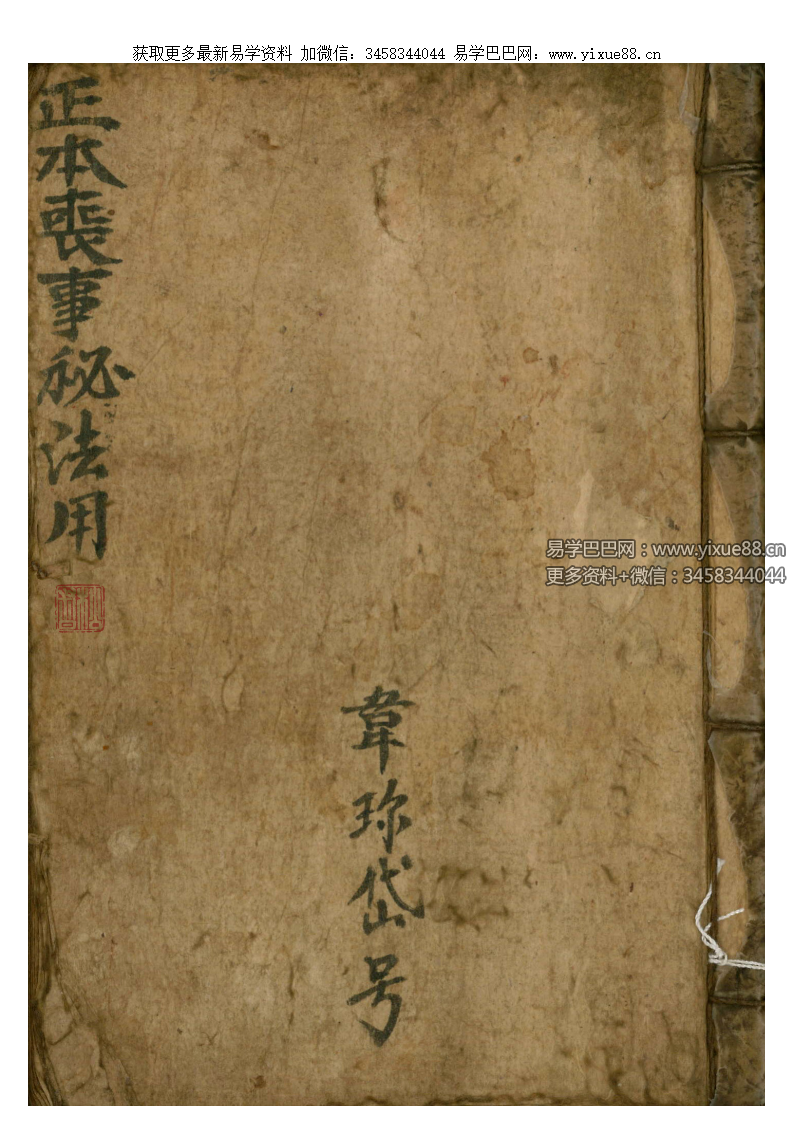 获取更多最新易学资料 加微信：3458344044 易学巴巴网：www.yixue88.cn
正本喪事秘法用
易学巴巴网：www.yixue88.cn
更多资料+微信：3458344044
韋珎岱号